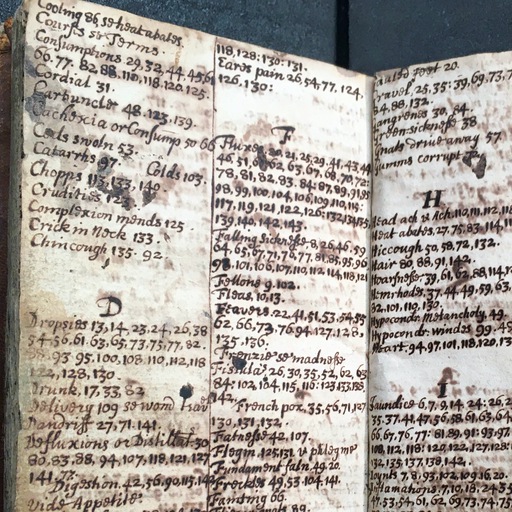 Cooling 86, se heat abates.
Courses se Terms.
Consumptions 29, 32, 44, 45, 61
66. 77. 82. 88, 110, 118, 120, 125.
Cordial 31.
Carbuncles 48. 123. 139.
Cachexia or Consump so 66
Cods swoln 53. Colds 103.
Catarrhs 97.
Chopps 113, 133, 149.
Crudities 12
Complexion mends 125.
Crick in Neck 133.
Chincough 135. 92.
D
Dropsies 13, 14, 23, 24, 26, 38
54, 56, 61, 63, 65, 73, 75, 77, 82.
93 95. 100, 108, 110, 112, 118
122, 128, 130
Drunk, 17, 33, 82
Delivery 109 se wom
Dandriff 27, 71, 141.
Defluxions or Distillat 30
80, 83, 88, 94, 107, 118, 121, 127
141.
Digestion. 42, 56, 90, 115, 142
Vide Appetite.
118, 128, 130, 131.
Eares pain 26, 54, 77, 124,
126, 130:
F
Fluxes 21, 25, 29, 41, 43, 44
46, 51, 62, 63, 67, 68, 70, 72:
78, 81, 82, 83, 84: 87, 89, 91,
98, 99, 100, 104, 106, 109, 110, 114:
117, 119, 121, 122, 126: 132, 134, 135
139, 140, 142, 143.
Falling sickness 8, 26, 46, 59
64, 65, 67, 71, 76, 77, 81, 85, 95, 96
98, 101, 106, 107, 110, 112, 114, 118, 121
Fellons 9, 102.
Fleas, 10, 13.
Feavers. 22, 41, 51, 53, 54, 55
62, 66, 73, 76 94, 127, 128,
135, 136.
Frenzie se madness
Fistula 26, 30, 35, 52, 62, 63
84: 102, 104, 115, 116: 123, 133, 138,
142.
French pox, 35, 56, 71, 127
130, 131, 132.
Fatness 42, 107.
Flegm. 125, 131 v phlegme
Fundament faln 49, 20.
Freckles 49, 53, 104, 141.
Fainting 66.
89.
foot 20.
Gravel, 25, 35: 39, 69, 73, 7
84, 88, 132.
Gangrenes 30, 84.
Green-sickness 38
Gnats drive away 57
Gumms corrupt 57.
H
Head ach & Ach, 110, 111, 112, 118
Heat abates, 27, 75, 83, 114, 11
Hiccough 50, 58, 72, 132.
Hair 80, 88, 91, 142.
Hoarsness. 39, 61, 62, 88, 114, 12
Hemrhodes, 37, 44, 49, 59, 63,
82, 101, 119, 132.
Hypocondr Melancholy, 49.
Hypocondr: windes 99. 48
Heart. 94, 97, 101, 118, 120, 13
I
Jaundice 6, 7, 9, 14, 24: 26, 2
35, 37, 41, 47, 56, 58, 61, 63, 64
66, 67, 76, 77: 81, 89, 91: 93, 97.
108, 112, 118: 120, 122, 127, 128:
132, 135, 137, 138, 142.
Joynts 7, 8, 93, 102, 109, 16, 20.
Inflamations, 7, 10, 18, 24, 35
47, 53, 54, 61, 62, 69, 73, 74, 75